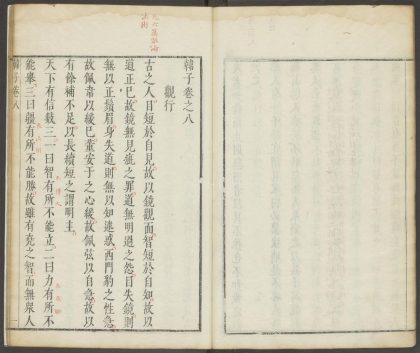 韓子卷之八
觀行
古之人目短於自見故以鏡觀面智短於自知故以
道正己故鏡無見疵之罪道無明過之怨目失鏡則
無以正鬚眉身失道則無以知迷惑西門豹之性急
故佩韋以緩己董安于之心緩故佩弦以自急故以
有餘補不足以長續短之謂明主
天下有信數三一曰智有所不能立二曰力有所不
能舉三曰彊有所不能勝故雖有堯之智而無衆人
韓子卷八